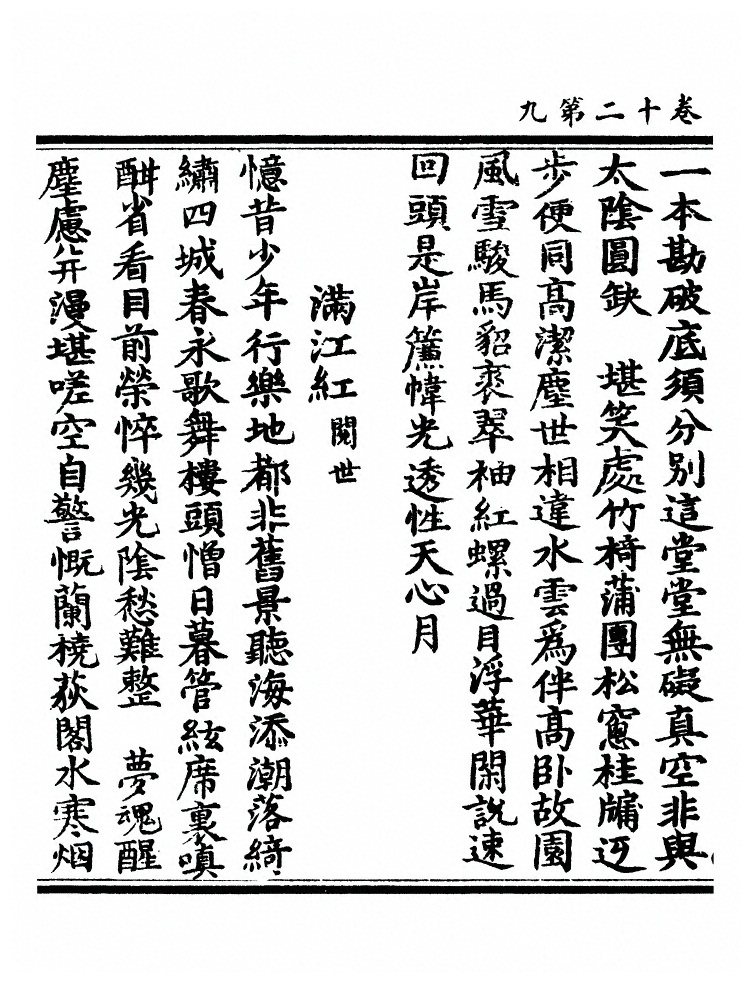 卷十二第九
一本勘破底須分別這堂堂無礙真空非與
太陰圓缺　堪笑處竹椅蒲團松窻桂牖迓
步便同高潔塵世相違水雲爲伴高臥故園
風雪駿馬貂裘翠袖紅螺過目浮華閑說速
回頭是岸簾幃光透性天心月
滿江紅閱世
憶昔少年行樂地都非舊景聽海添潮落綺
繡四城春永歌舞樓頭憎日暮管絃席裏嗔
酣省看目前榮悴幾光陰愁難整　夢魂醒
塵慮屏漫堪嗟空自警慨蘭橈荻閣水寒烟